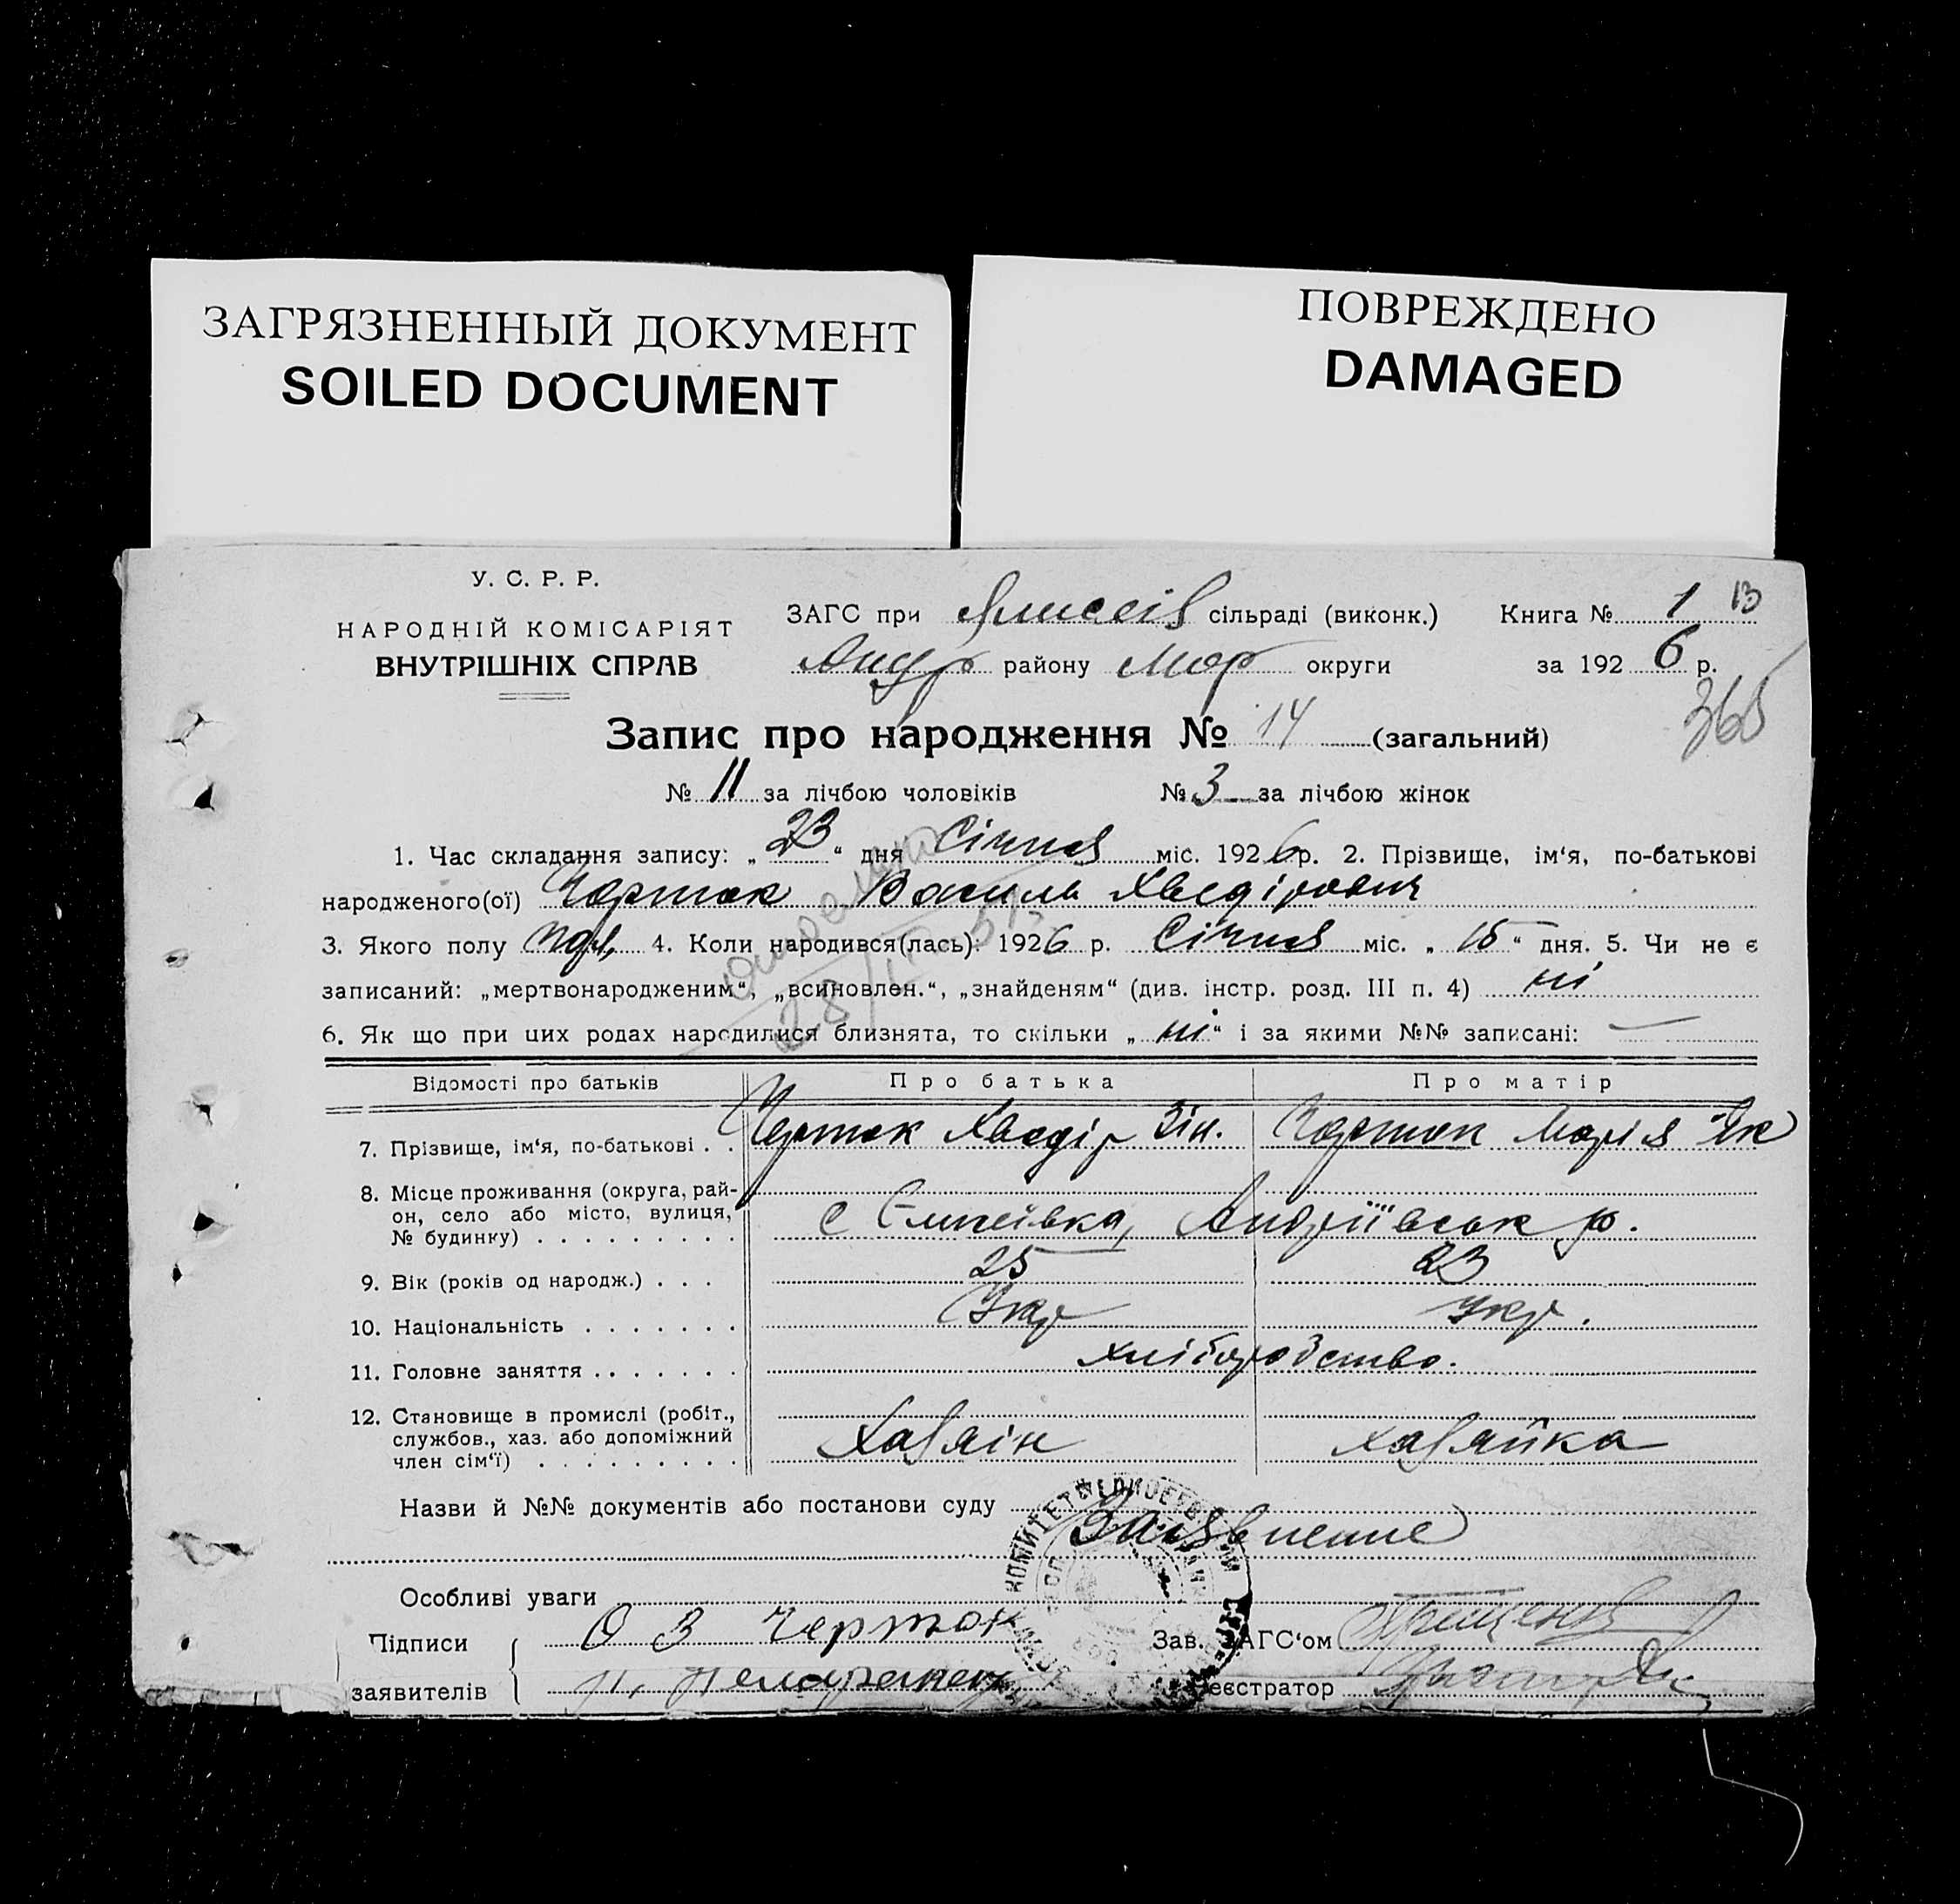 ЗАГРЯЗНЕННЫЙ ДОКУМЕНТ
SOILED DOCUMENT
ПОВРЕЖДЕНО
DAMAGED
У. С. Р. Р.
НАРОДНІЙ КОМІСАРІЯТ
ВНУТРІШНІХ СПРАВ
ЗАГС при сільраді (виконк.) Книга № 1 13
Андр району Мар округи за 1926 р.
365
Запис про народження № 14 (загальний)
№ 11 за лічбою чоловіків № 3 за лічбою жінок
1. Час складання запису: „ 23 “ дня Січня міс. 1926 р. 2. Прізвище, ім‘я, по-батькові
народженого(ої) Чорток Василь Хведірович
3. Якого полу 4. Коли народився(лась): 1926 р. Січня міс. „ 15 “ дня. 5. Чи не є
записаний: „мертвонародженим“, „всиновлен.“, „знайденям“ (див. інстр. розд. III п. 4) ні
6. Як що при цих родах народилися близнята, то скільки „ ні “ і за якими №№ записані: —
Відомості про батьків Про батька Про матір
7. Прізвище, ім‘я, по-батькові . . Чорток Хведір Зін. Чорток Марія Як
8. Місце проживання (округа, рай-
он, село або місто, вулиця,
№ будинку) . . . . . . . . . с Елисеївка, Андріївськ р.
9. Вік (років од народж.) . . . 25 23
10. Національність . . . . . . . Укр Укр.
11. Головне заняття . . . . . . . хліборобство.
12. Становище в промислі (робіт.,
службов., хаз. або допоміжний
член сім‘ї) . . . . . . . . . Хазяїн хазяйка
Назви й №№ документів або постанови суду
Заявление
Особливі уваги
Підписи О З Черток Зав. ЗАГС‘ом
заявителів Реєстратор